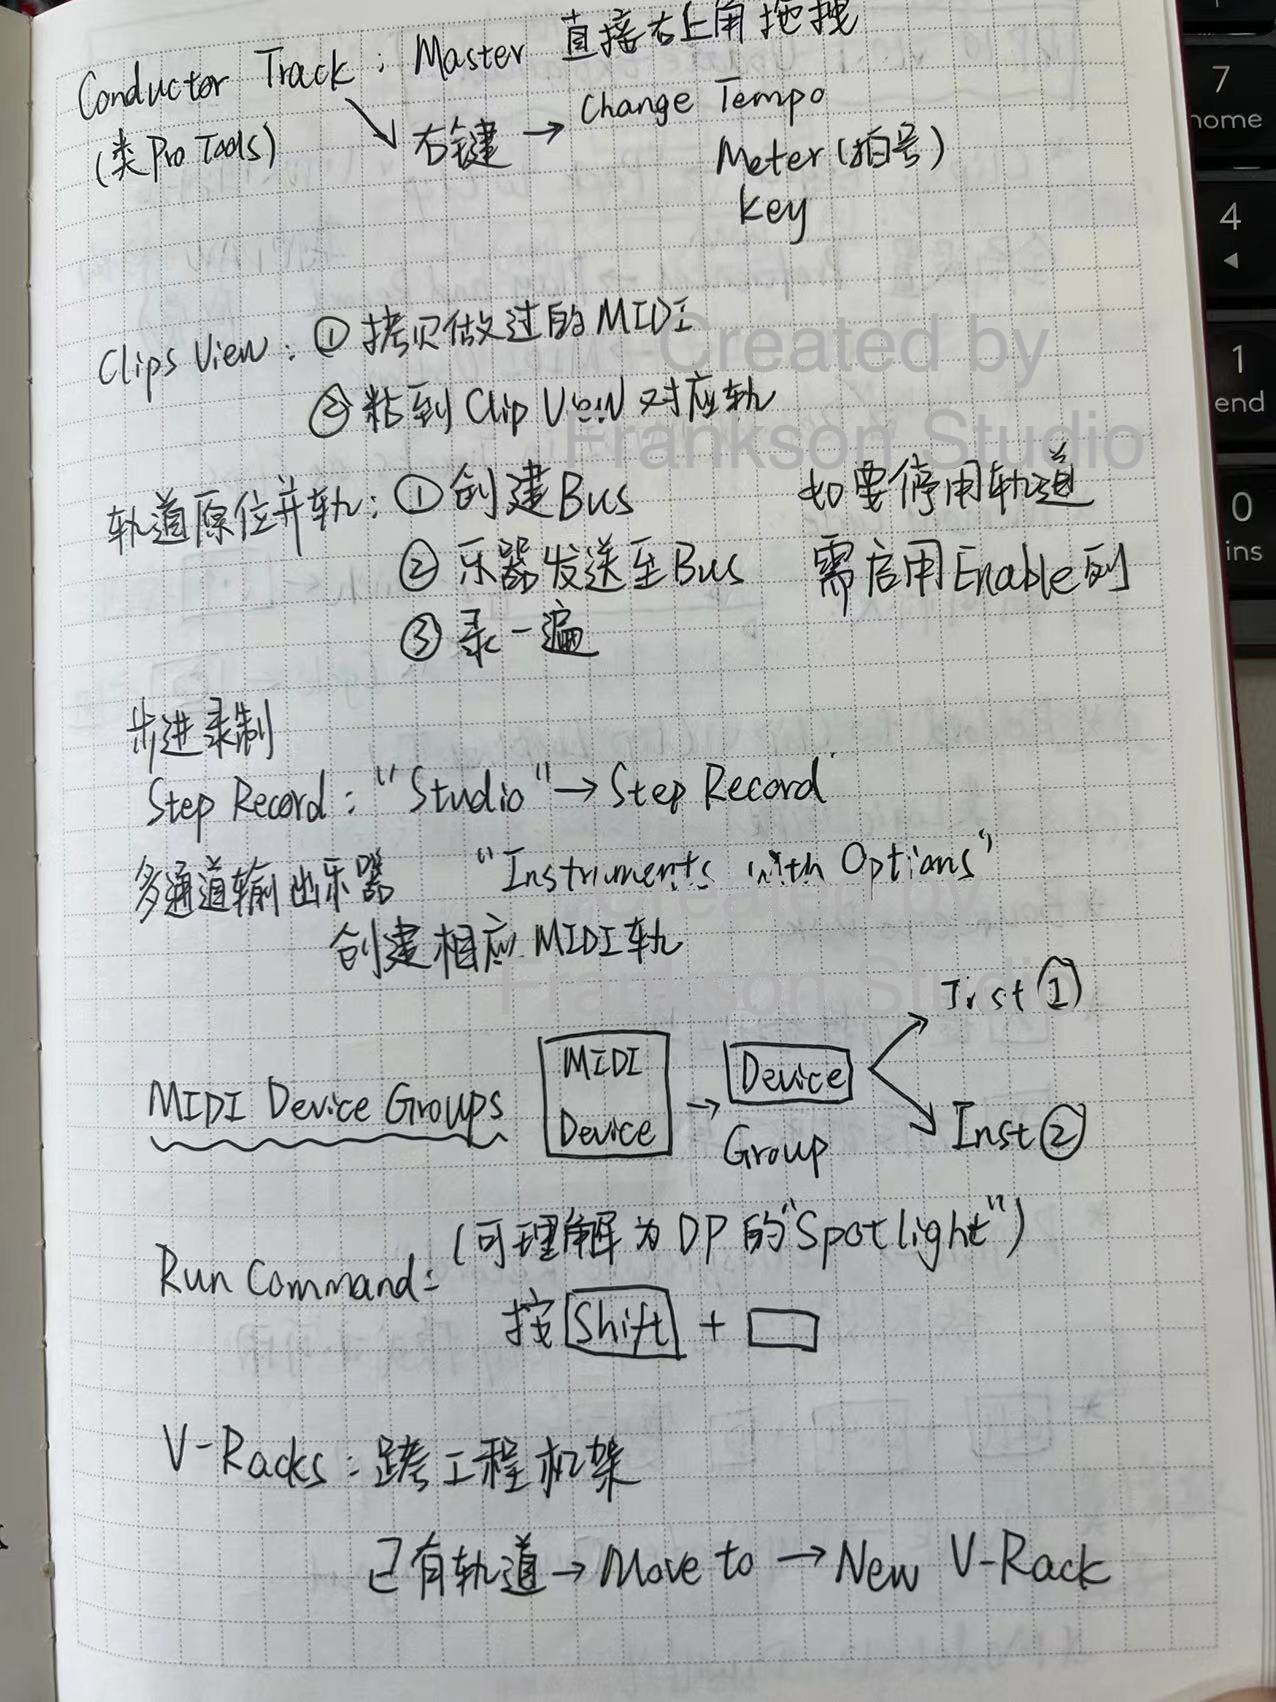 Conductor Track: Master 直接右上角拖拽
(类Pro Tools)
右键 → Change Tempo
Meter(拍号)
key
Clips View: ① 拷贝做过的MIDI
② 粘到Clip View对应轨
轨道原位并轨: ① 创建Bus
② 乐器发送至Bus
③ 录一遍
如要停用轨道
需启用Enable列
步进录制
Step Record: "Studio" → Step Record
多通道输出乐器 "Instruments with Options"
创建相应MIDI轨
MIDI Device Groups
MIDI
Device
→ Device
Group
Inst ①
Inst ②
Run Command: (可理解为DP的"Spotlight")
按 Shift +
V-Racks: 跨工程机架
已有轨道 → Move to → New V-Rack
Created by
Frankson Studio
Created by
Frankson Studio
7
home
4
◂
1
end
0
ins